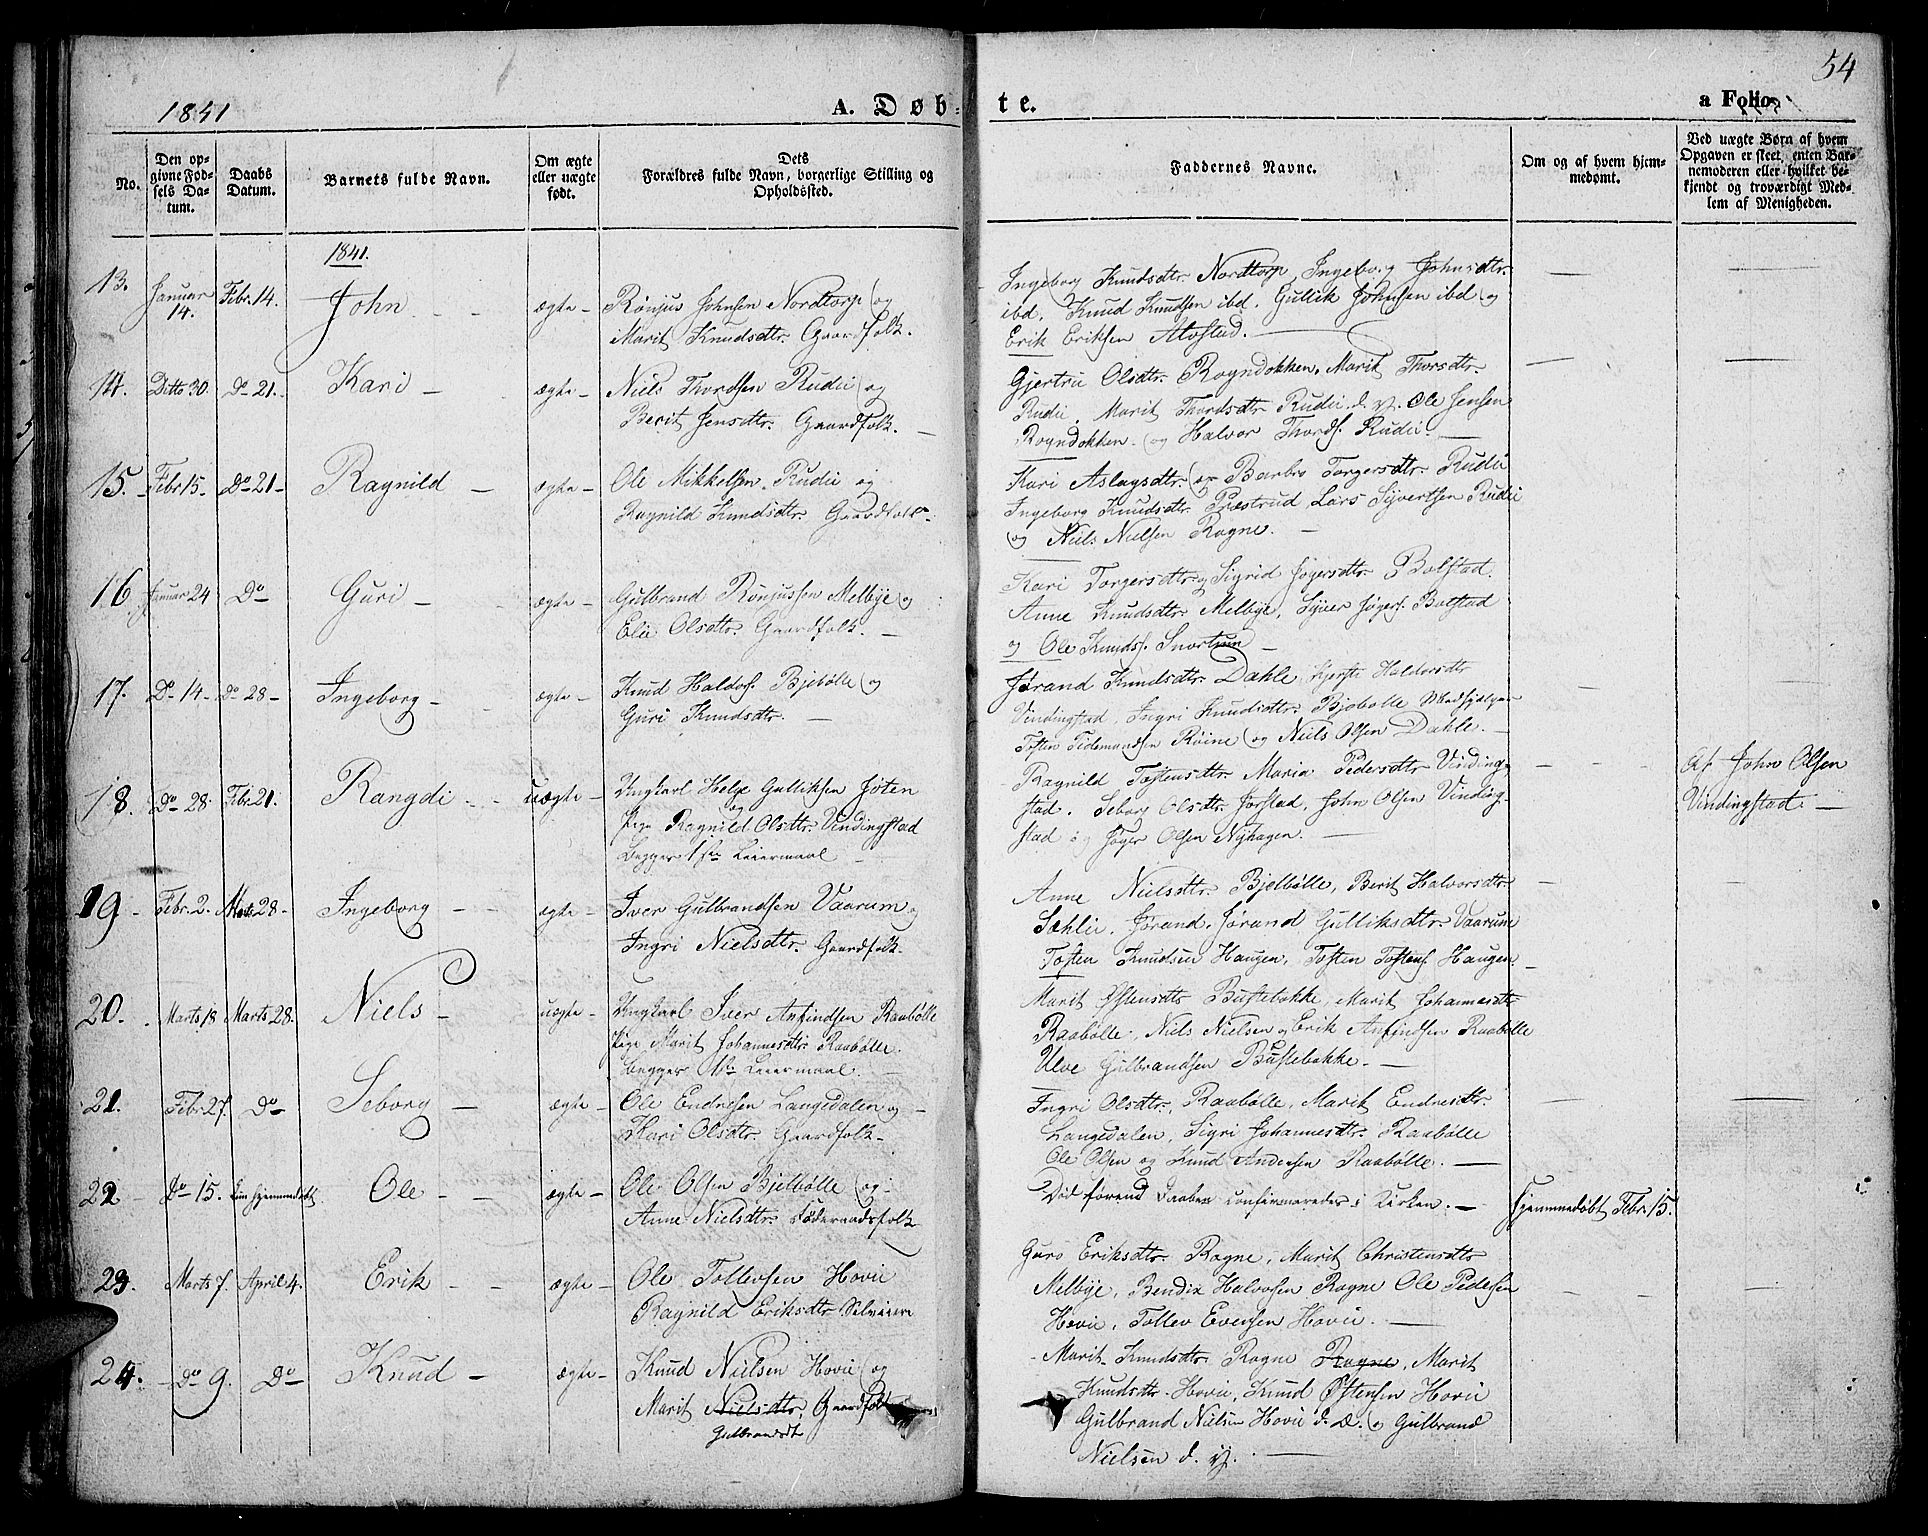 54
1841 A. Døb- te. a Folio
No.
Den opgivne Fødsels Datum.
Daabs Datum.
Barnets fulde Navn.
Om ægte eller uægte født.
Dets Forældres fulde Navn, borgerlige Stilling og Opholdssted.
Faddernes Navne.
Om og af hvem hjemmedømt.
Ved uægte Børn af hvem Opgaven er skeet, enten Barnemoderen eller hvilket bekjendt og troværdigt Medlem af Menigheden.
1841.
13. Januar 14. Febr. 14. John ægte Rönjus Johnsen Nordtorp og
Marit Knudsdtr. Gaardfolk.
Ingeborg Knudsdtr. Nordtorp, Ingeborg Johnsdtr.
ibd. Knud Knudsen ibd. Gullik Johnsen ibd og
Erik Eriksen Alvstad.
14. Ditto 30. Do 21. Kari ægte Niels Thordsen Rudii og
Berit Jensdtr. Gaardfolk.
Gjertru Olsdtr. Rogndokken, Marit Thorsdtr.
Rudii, Marit Thordsdtr. Rudii d. y. Ole Jensen
Rogndokken og Halvor Thords. Rudii.
15. Febr 15. Do 21 Ragnild ægte Ole Mikkelsen Rudii og
Ragnild Knudsdtr. Gaardfolk.
Kari Aslagsdtr. og Barbro Torgersdtr. Rudii
Ingeborg Knudsdtr. Præstrud, Lars Sijvertsen Rudii
og Niels Nielsen Rogne.
16 Januar 24 Do Guri ægte Gulbrand Rönjussen Melbye og
Elie Olsdtr. Gaardfolk.
Kari Torgersdtr. og Sigrid Jøgersdtr. Bolstad.
Anne Knudsdtr. Melbye, Syver Jøgers. Bolstad
og Ole Knuds. Snortum
17. Do 14 Do 28 Ingeborg ægte Knud Haldors. Bjebølle og
Guri Knudsdtr.
Jørand Knudsdtr. Dahle, Kjersti Haldorsdtr
Vindingstad, Ingri Knudsdtr. Bjebølle
Tosten Tidemandsen Röine og Niels Olsen Dahle.
18. Do 28. Febr. 21. Rangdi uægte Ungkarl Helge Gulliksen Joten
og
Pige Ragnild Olsdtr. Vindingstad
Begges 1ste Leiermaal
Ragnild Tostensdtr. Maria Pedersdtr Vinding-
stad. Seborg Olsdtr. Jorstad, John Olsen Vinding-
stad og Jøger Olsen Nyhagen.
Af John Olsen
Vindingstad.
19 Febr. 2. Marts 28 Ingeborg ægte Iver Gulbrandsen Vaarum og
Ingri Nielsdtr. Gaardfolk.
Anne Nielsdtr. Bjelbölle, Berit Halvorsdtr.
Sæhlii. Jørand. Jørand Gulliksdtr. Vaarum
Tosten Knudsen Haugen, Tosten Tostens. Haugen.
20. Marts 18 Marts 28. Niels uægte Ungkarl Iver Anfindsen Raabölle
Pige Marit Johannesdtr. Raabölle.
Begges 1ste Leiermaal.
Marit Østensdtr Bustebakke, Marit Johannesdtr
Raabölle, Niels Nielsen og Erik Anfindsen Raabölle
Ulve Gulbrandsen Bustebakke.
21. Febr. 27. Do Seborg ægte Ole Endresen Langedalen og
Kari Olsdtr. Gaardfolk.
Ingri Olsdtr. Raabölle, Marit Endresdtr.
Langedalen, Sigri Johannesdtr. Raabölle
Ole Olsen og Knud Andersen Raabölle.
22 Do 15. hjemmedöbt Ole ægte Ole Olsen Bjelbölle og
Anne Nielsdtr. Föderaadsfolk
Död förend Daaben confirmeredes i Kirken.
Hjemmedöbt Febr. 15.
23. Marts 7. April 4. Erik ægte Ole Tollevsen Hovii
Ragnild Eriksdtr.
Guro Eriksdtr. Rogne, Marit Christensdtr
Melbye, Bendix Halvorsen Rogne Ole Pedersen
Hovii, Tollev Evensen Hovii.
24. Do 9. Do Knud ægte Knud Nielsen Hovii og
Marit Nielsdtr. Gaardfolk
Gulbrandsdtr
Marit Knudsdtr. Rogne Rogne, Marit
Knudsdtr. Hovii, Knud Østensen Hovii
Gulbrand Nielsen Hovii d. Æ. og Gulbrand
Nielsen d. y.